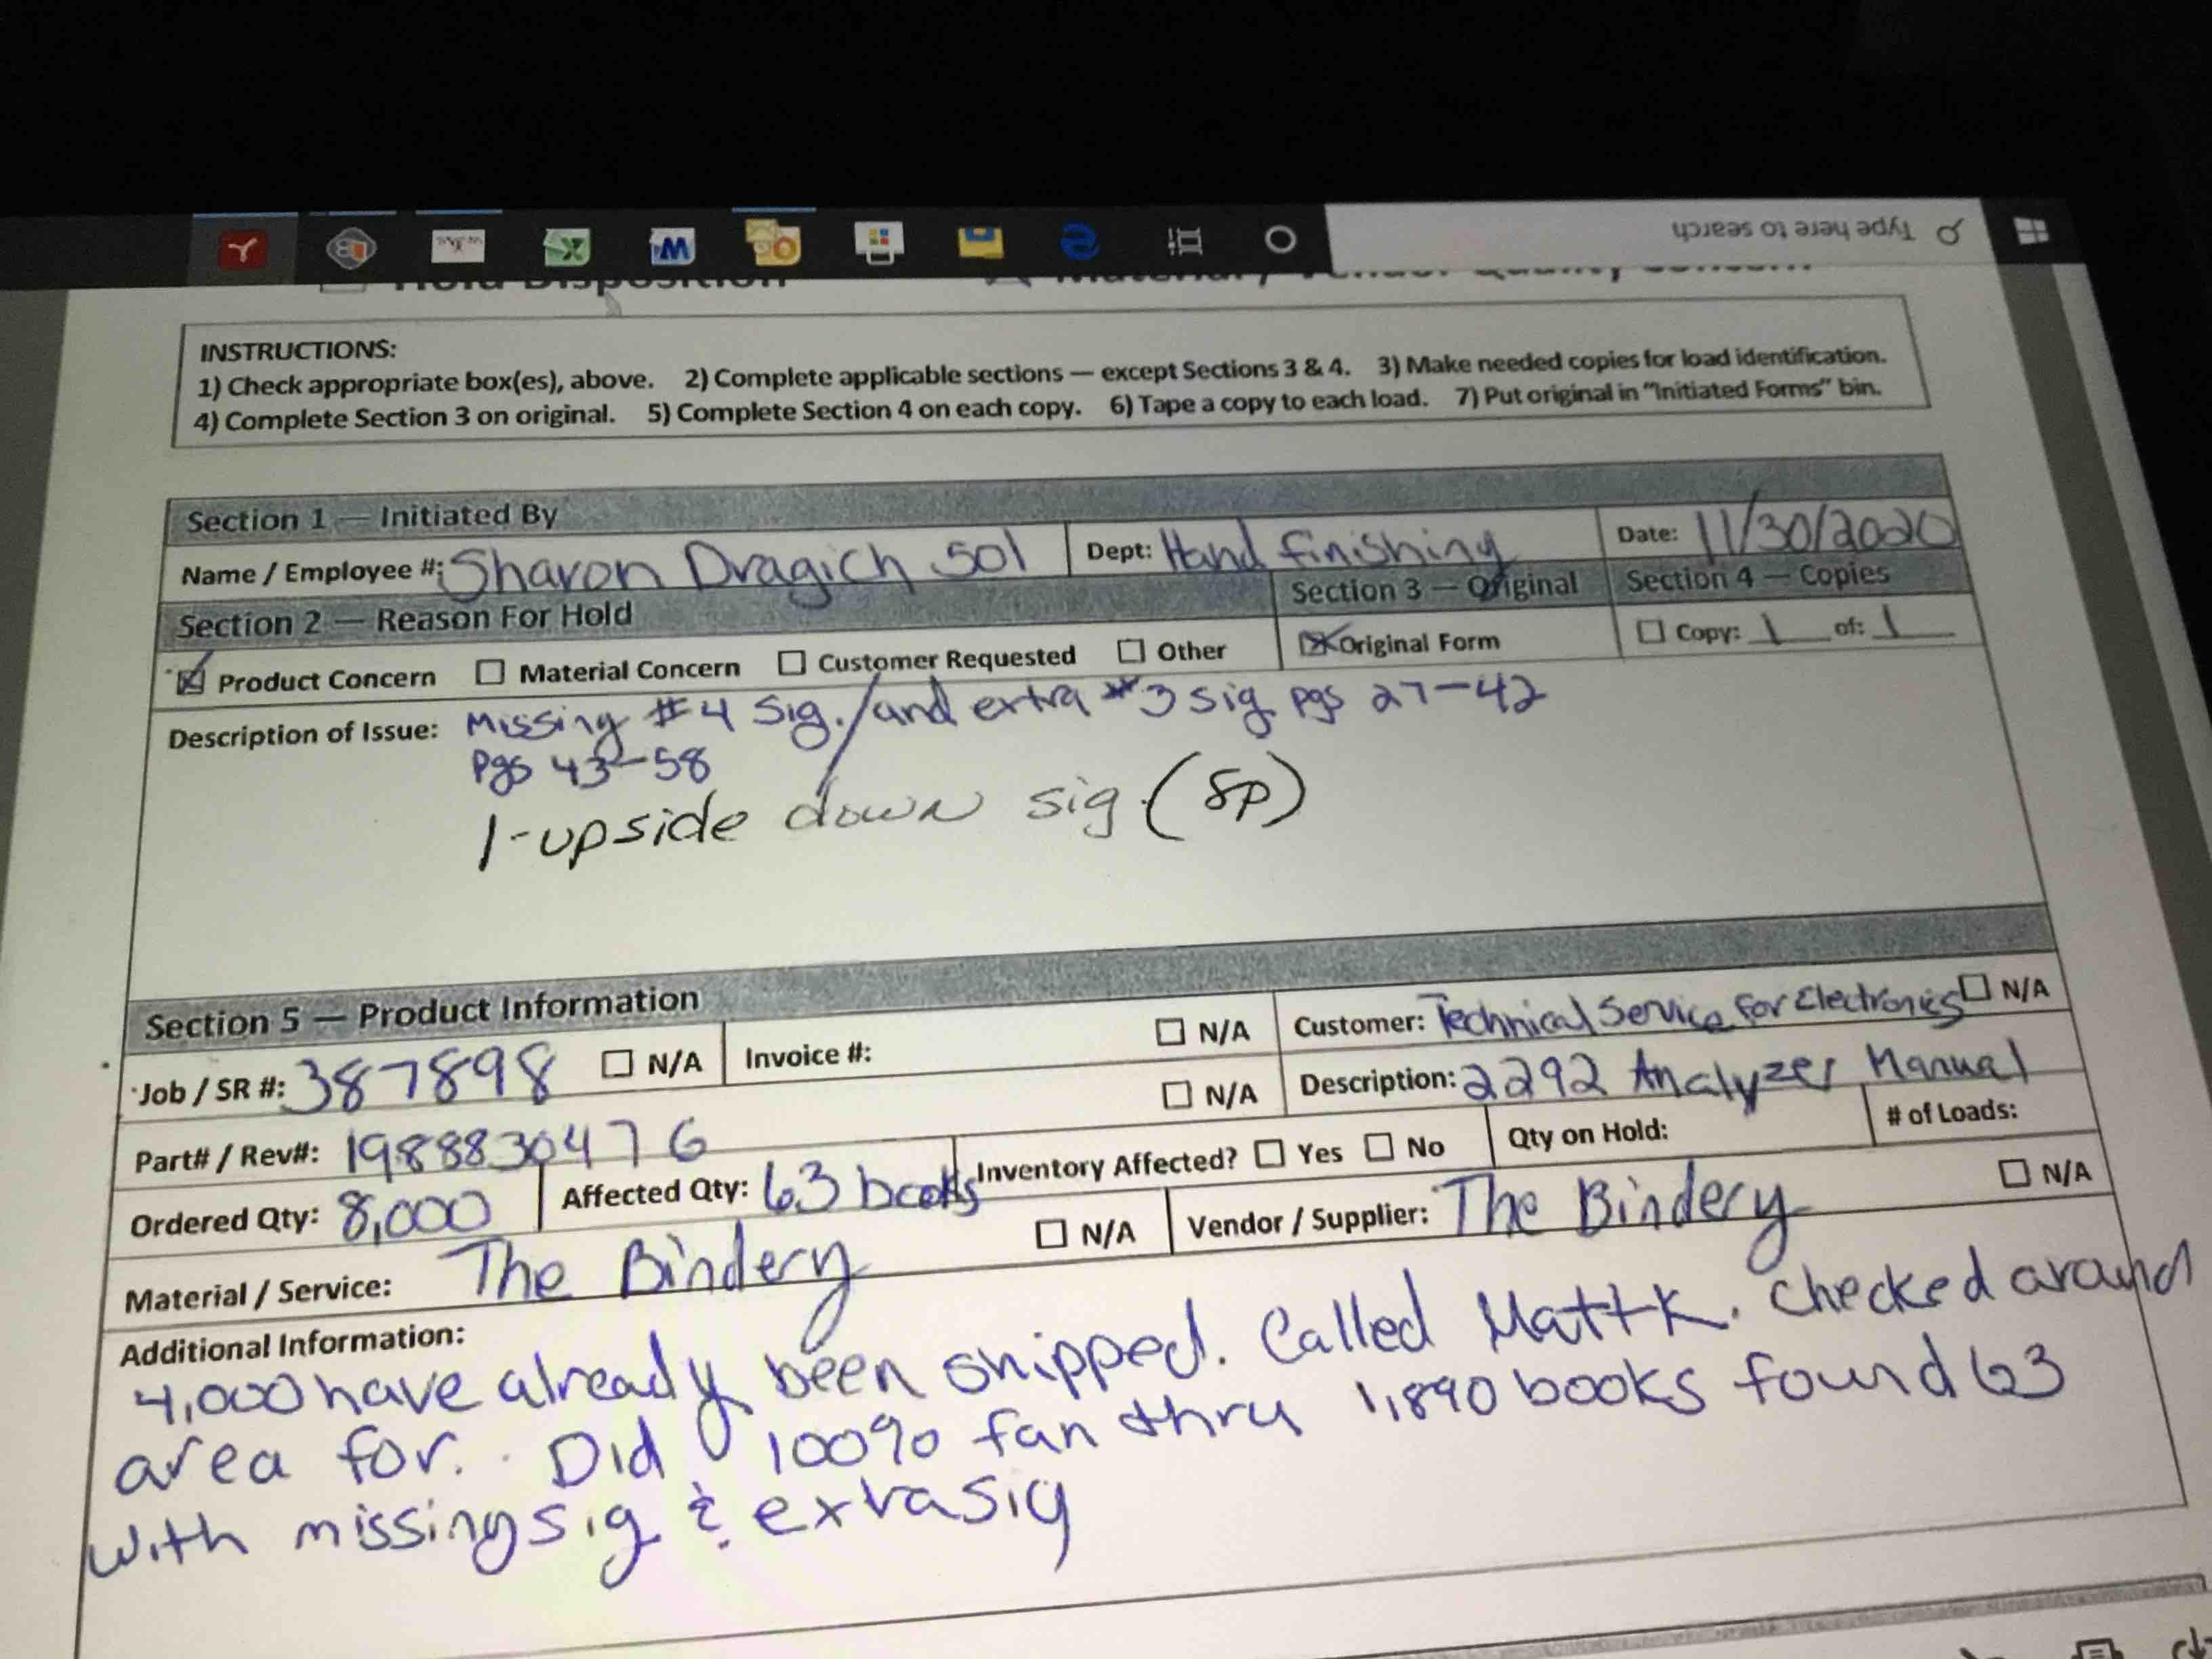 Type here to search
Hold Disposition
INSTRUCTIONS:
1) Check appropriate box(es), above. 2) Complete applicable sections — except Sections 3 & 4. 3) Make needed copies for load identification.
4) Complete Section 3 on original. 5) Complete Section 4 on each copy. 6) Tape a copy to each load. 7) Put original in "Initiated Forms" bin.
Section 1 — Initiated By
Name / Employee #: Sharon Dragich 501 Dept: Hand finishing Date: 11/30/2020
Section 2 — Reason For Hold Section 3 — Original Section 4 — Copies
Product Concern Material Concern Customer Requested Other Original Form Copy: 1 of: 1
Description of Issue: Missing #4 Sig. / and extra #3 sig pgs 27-42
Pgs 43-58
1-upside down sig. (8p)
Section 5 — Product Information
Job / SR #: 387898 N/A Invoice #: N/A Customer: Technical Service for Electronics N/A
Part# / Rev#: 1988830476 N/A Description: 2292 Analyzer Manual
Ordered Qty: 8,000 Affected Qty: 63 books Inventory Affected? Yes No Qty on Hold: # of Loads:
Material / Service: The Bindery N/A Vendor / Supplier: The Bindery N/A
Additional Information:
4,000 have already been shipped. Called Matt K. Checked around
area for. Did 100% fan thru 1,890 books found 63
with missing sig & exrasig